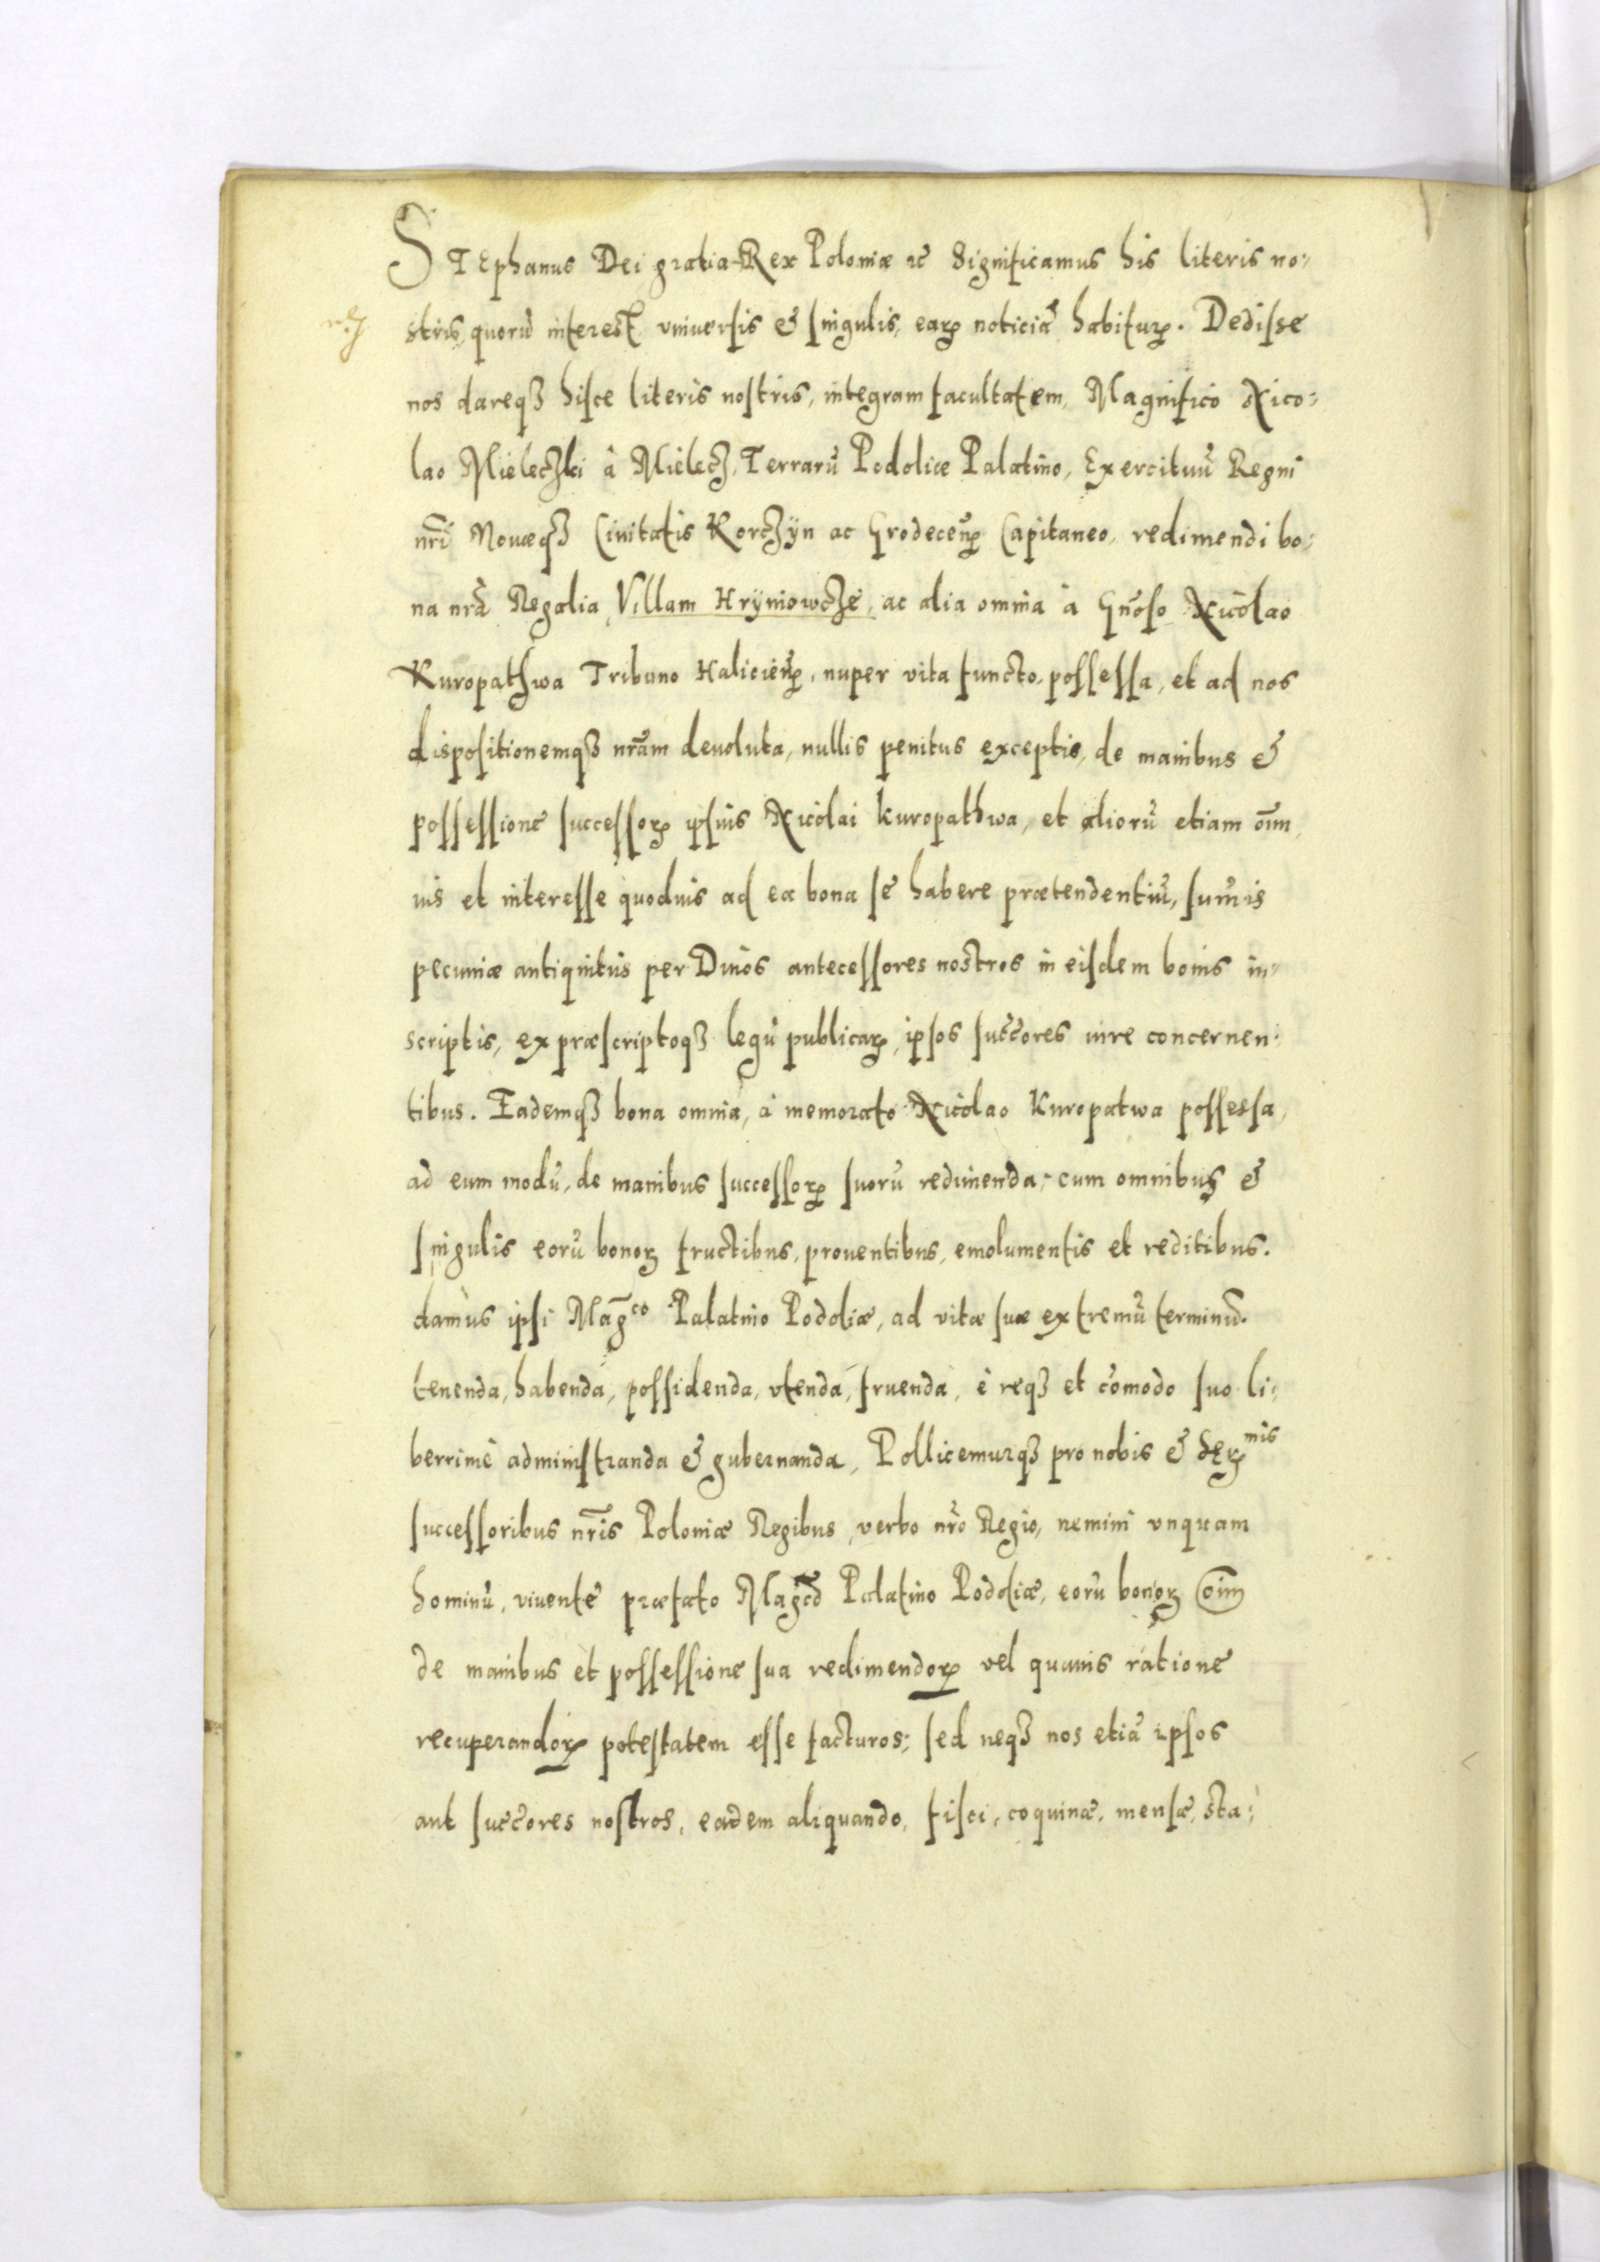 STEphanus Dei gratia Rex Poloniæ ꝛc Significamus his literis no:
stris, quorũ interest vniuersis & singulis, earꝝ noticiã habiturꝝ. Dedisse
nos dareqꝫ hisce literis nostris, integram facultatem, Magnifico Nico:
lao Mieleczki à Mielecz, Terrarũ Podoliæ Palatino, Exercituũ Regni
nr̃i Nouæqꝫ Ciuitatis Korczÿn ac Grodeceñ Capitaneo, redimendi bo:
na nr̃a Regalia Villam Hrÿniowcze, ac alia omnia à Gñoso Nicolao
Kuropathwa Tribuno Halicieñ, nuper vita functo, possessa, et ad nos
dispositionemqꝫ nr̃am deuoluta, nullis penitus exceptis, de manibus &
possessione successorꝝ ipsius Nicolai Kuropathwa, et aliorũ etiam oĩm
ius et interesse quoduis ad ea bona se habere prætendentiũ, sum̃is
pecuniæ antiquitus per Diuos antecessores nostros in eisdem bonis in:
scriptis, ex præscriptoqꝫ legũ publicarꝝ, ipsos succ̃ores iure concernen:
tibus. Eademqꝫ bona omnia, à memorato Nicolao Kuropatwa possessa,
ad eum modũ, de manibus successorꝝ suorũ redimenda, cum omnibus &
singulis eorũ bonorꝝ fructibus, prouentibus, emolumentis et reditibus.
damus ipsi Mag̃co Palatino Podoliæ, ad vitæ suæ extremũ terminũ.
tenenda, habenda, possidenda, vtenda, fruenda, è reqꝫ et cõmodo suo li:
berrimè administranda & gubernanda, Pollicemurqꝫ pro nobis & Sermis
successoribus nr̃is Poloniæ Regibus, verbo nr̃o Regio, nemini vnquam
hominũ, viuente præfato Mag̃co Palatino Podoliæ, eorũ bonorꝝ oĩm
de manibus et possessione sua redimendorꝝ vel quauis ratione
recuperandorꝝ potestatem esse facturos; sed neqꝫ nos etiã ipsos
aut succ̃ores nostros, eadem aliquando, fisci, coquinæ, mensæ, sta: